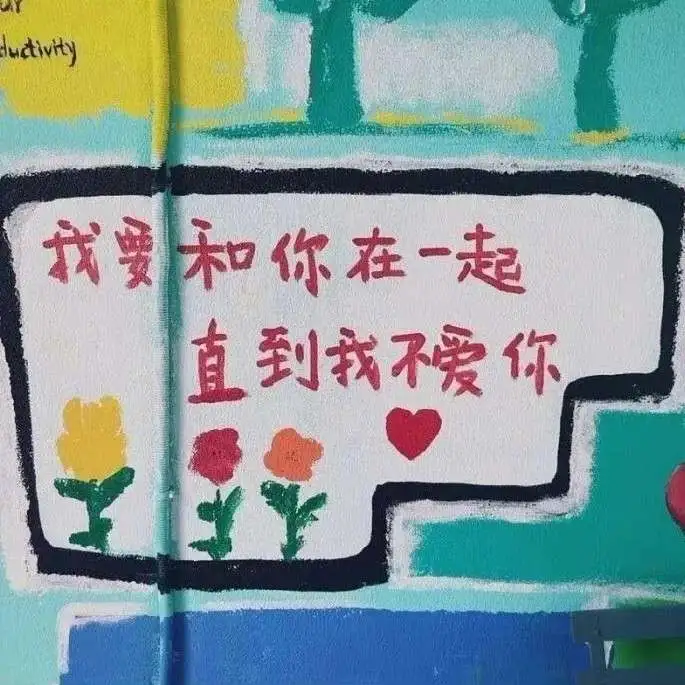 ductivity
我要和你在一起
直到我不爱你